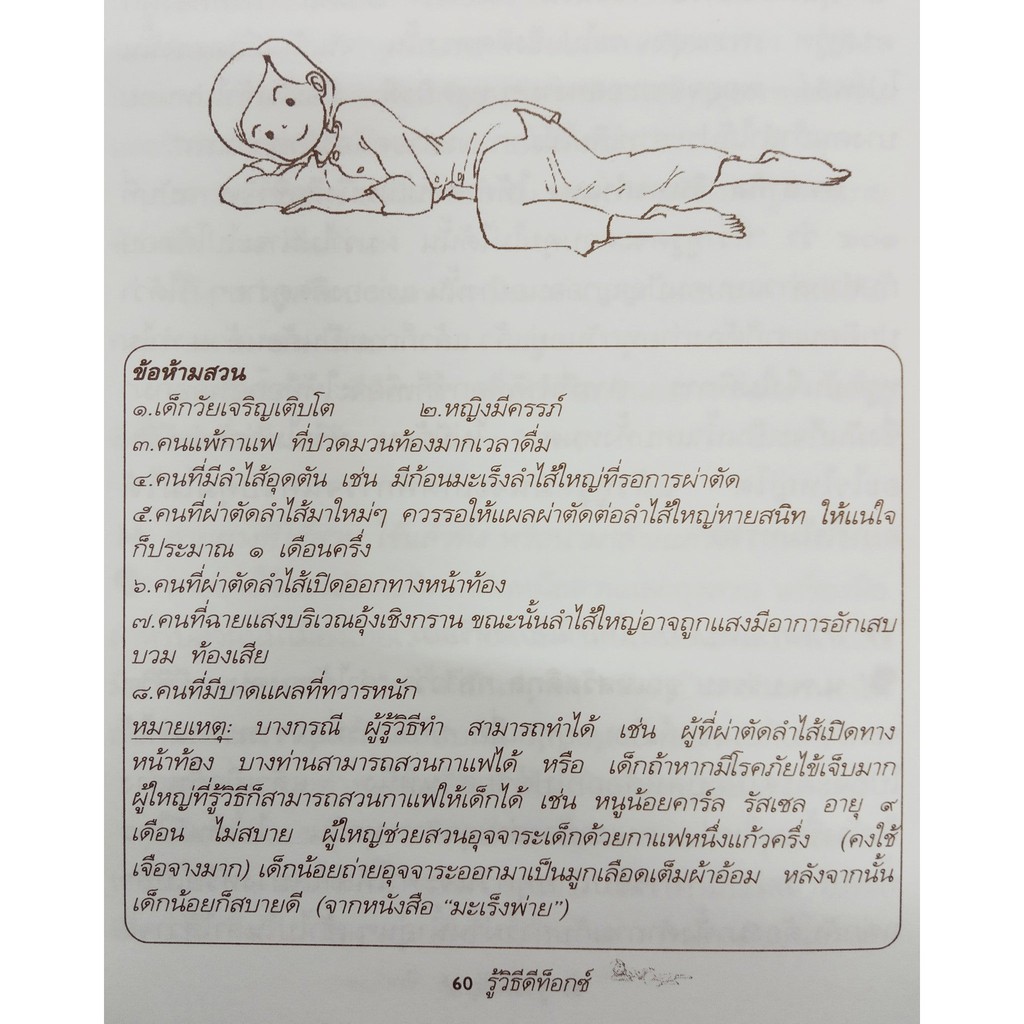 ข้อห้ามสวน
๑.เด็กวัยเจริญเติบโต ๒.หญิงมีครรภ์
๓.คนแพ้กาแฟ ที่ปวดมวนท้องมากเวลาดื่ม
๔.คนที่มีลำไส้อุดตัน เช่น มีก้อนมะเร็งลำไส้ใหญ่ที่รอการผ่าตัด
๕.คนที่ผ่าตัดลำไส้มาใหม่ๆ ควรรอให้แผลผ่าตัดต่อลำไส้ใหญ่หายสนิท ให้แน่ใจ
ก็ประมาณ ๑ เดือนครึ่ง
๖.คนที่ผ่าตัดลำไส้เปิดออกทางหน้าท้อง
๗.คนที่ฉายแสงบริเวณอุ้งเชิงกราน ขณะนั้นลำไส้ใหญ่อาจถูกแสงมีอาการอักเสบ
บวม ท้องเสีย
๘.คนที่มีบาดแผลที่ทวารหนัก
หมายเหตุ: บางกรณี ผู้รู้วิธีทำ สามารถทำได้ เช่น ผู้ที่ผ่าตัดลำไส้เปิดทาง
หน้าท้อง บางท่านสามารถสวนกาแฟได้ หรือ เด็กถ้าหากมีโรคภัยไข้เจ็บมาก
ผู้ใหญ่ที่รู้วิธีก็สามารถสวนกาแฟให้เด็กได้ เช่น หนูน้อยคาร์ล รัสเซล อายุ ๙
เดือน ไม่สบาย ผู้ใหญ่ช่วยสวนอุจจาระเด็กด้วยกาแฟหนึ่งแก้วครึ่ง (คงใช้
เจือจางมาก) เด็กน้อยถ่ายอุจจาระออกมาเป็นมูกเลือดเต็มผ้าอ้อม หลังจากนั้น
เด็กน้อยก็สบายดี (จากหนังสือ “มะเร็งพ่าย”)
60 รู้วิธีดีท็อกซ์